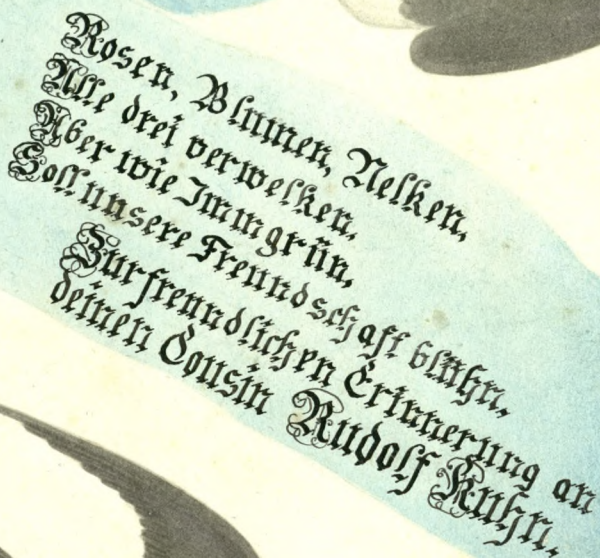 Rosen, Blumen, Nelken,
Alle drei verwelken,
Aber wie Immgrün,
Soll unsere Freundschaft blühn,
Zur freundlichen Erinnerung an
deinen Cousin Rudolf Kuhn.